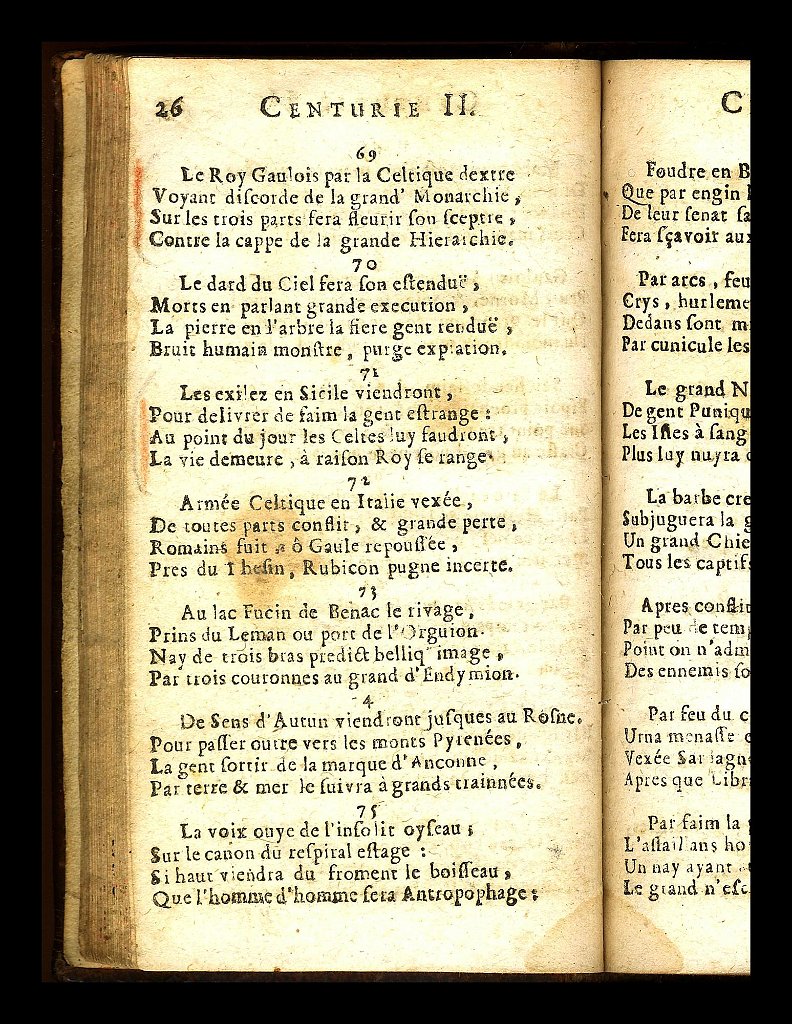 26 CENTURIE II.
69
Le Roy Gaulois par la Celtique dextre
Voyant diſcorde de la grand' Monarchie,
Sur les trois parts ſera fleurir ſon ſceptre,
Contre la cappe de la grande Hierarchie.
70
Le dard du Ciel fera ſon eſtenduë,
Morts en parlant grande execution,
La pierre en l'arbre la fiere gent renduë,
Bruit humain monſtre, purge expiation.
71
Les exilez en Sicile viendront,
Pour delivrer de faim la gent eſtrange:
Au point du jour les Celtes luy faudront,
La vie demeure, à raiſon Roy ſe range.
72
Armée Celtique en Italie vexée,
De toutes parts conflit, & grande perte,
Romains fuit ô Gaule repouſſée,
Pres du Theſin, Rubicon pugne incerte.
73
Au lac Fucin de Benac le rivage,
Prins du Leman ou port de l'Orguion.
Nay de trois bras predict belliq image,
Par trois couronnes au grand d'Endymion.
4
De Sens d'Autun viendront juſques au Roſne.
Pour paſſer outre vers les monts Pyrenées,
La gent ſortir de la marque d'Anconne,
Par terre & mer le ſuivra à grands trainnées.
75
La voix ouye de l'inſolit oyſeau;
Sur le canon du reſpiral eſtage:
Si haut viendra du froment le boiſſeau,
Que l'homme d'homme ſera Antropophage:
C
Foudre en B
Que par engin
De leur ſenat ſa
Fera ſçavoir aux
Par arcs, feu
Crys, hurleme
Dedans ſont m
Par cunicule les
Le grand N
De gent Puniqu
Les Iſles à ſang
Plus luy nuyra
La barbe cre
Subjuguera la g
Un grand Chie
Tous les captifs
Apres conflit
Par peu de temp
Point on n'adm
Des ennemis ſo
Par feu du c
Urna menaſſe
Vexée Sardaign
Apres que Libr
Par faim la
L'aſſaillans ho
Un nay ayant
Le grand n'eſc